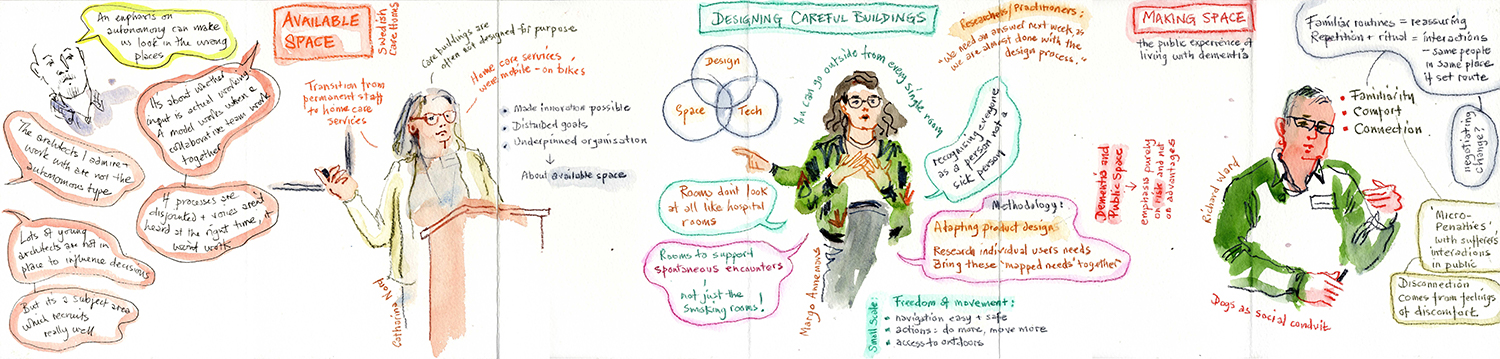 An emphasis on
autonomy can make
us look in the wrong
places
Its about whether
input is actual working
A model works when a
collaborative team work
together
The architects I admire
work with are not the
autonomous type
If processes are
disjointed + voices aren't
heard at the right time, it
wont work
Lots of young
architects are not in
place to influence decisions
But its a subject area
which recruits
really well
AVAILABLE
SPACE
Swedish
Care Homes
Care buildings are
often not designed for purpose
Home care services
were mobile - on bikes
Transition from
permanent staff
to home care
services
Made innovation possible
Distuded goals
Underpinned organisation
About available space
Catharina Nord
DESIGNING CAREFUL BUILDINGS
Design
Space
Tech
Researchers/Practitioners:
"We need an answer next week, as
we are almost done with the
design process."
You can go outside from every single room
recognising everyone
as a person not a
sick person
Rooms dont look
at all like hospital
rooms
Rooms to support
spontaneous encounters
, not just the
smoking rooms!
Margo Annemans
Methodology:
Adapting product design
Research individual users needs
Bring these 'mapped needs' together
Small Scale:
Freedom of movement:
navigation easy + safe
actions: do more, move more
access to outdoors
MAKING SPACE
the public experience of
living with dementia
Dementia and
Public Space
emphasis purely
on risk and not
on advantages
Familiar routines = reassuring
Repetition + ritual = interactions
- same people
in same place
if set route
negotiating
change?
Familiarity
Comfort
Connection
Richard Ward
Dogs as social conduit
'Micro-
Penalties'
with sufferers
interactions
in public
Disconnection
comes from feelings
of discomfort